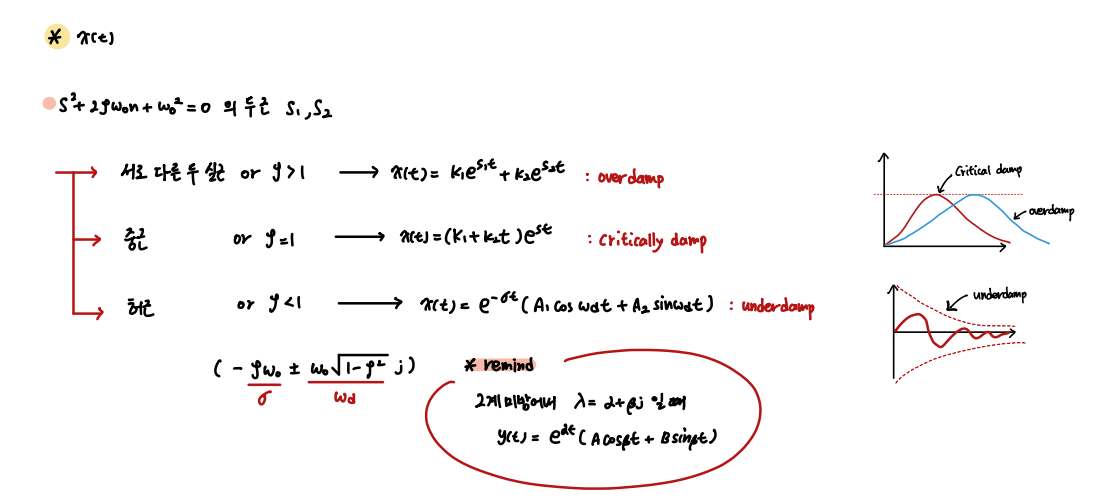 * x(t)
S²+2ζω₀n+ω₀²=0 의 두근 S₁,S₂
서로 다른 두 실근 or ζ>1 → x(t)= K₁e^{S₁t}+K₂e^{S₂t} : overdamp
중근 or ζ=1 → x(t)=(K₁+K₂t)e^{st} : Critically damp
허근 or ζ<1 → x(t)= e^{-σt}(A₁cos ωdt + A₂ sinωdt) : underdamp
(-ζω₀ ± ω₀√(1-ζ²) j)
σ ωd
* remind
2계미방에서 λ= α+βj 일 때
y(t)= e^{αt}(Acosβt + Bsinβt)
Critical damp
overdamp
underdamp